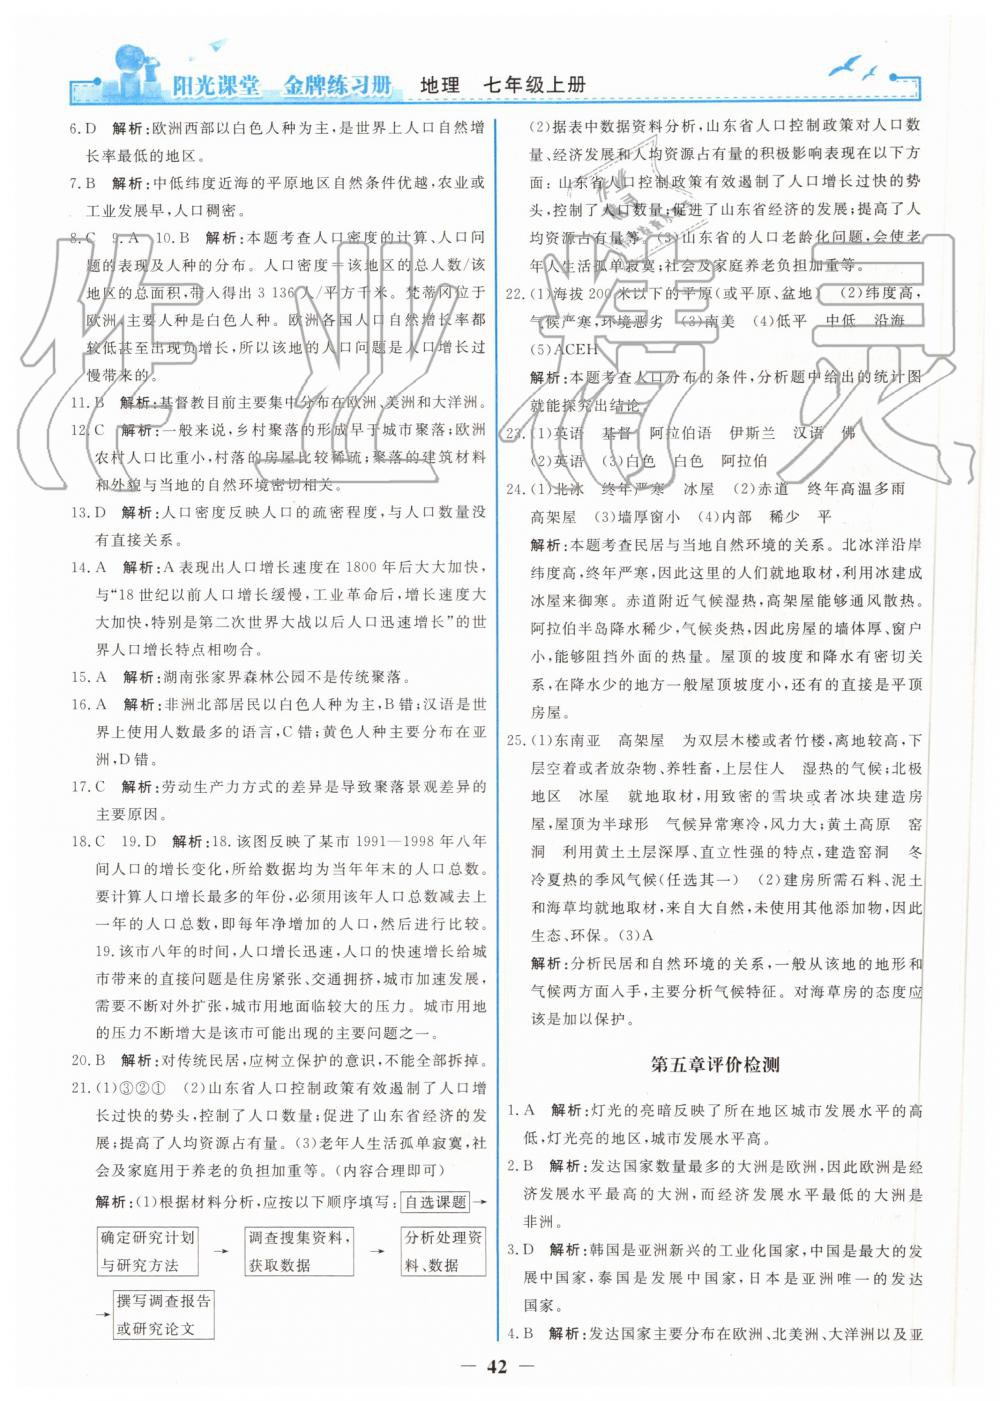 阳光课堂 金牌练习册 地理 七年级上册
6. D 解析:欧洲西部以白色人种为主,是世界上人口自然增
长率最低的地区。
7. B 解析:中低纬度近海的平原地区自然条件优越,农业或
工业发展早,人口稠密。
8. C 9. A 10. B 解析:本题考查人口密度的计算、人口问
题的表现及人种的分布。人口密度=该地区的总人数/该
地区的总面积,带入得出 3 136 人/平方千米。梵蒂冈位于
欧洲,主要人种是白色人种。欧洲各国人口自然增长率都
较低甚至出现负增长,所以该地的人口问题是人口增长过
慢带来的。
11. B 解析:基督教目前主要集中分布在欧洲、美洲和大洋洲。
12. C 解析:一般来说,乡村聚落的形成早于城市聚落;欧洲
农村人口比重小,村落的房屋比较稀疏;聚落的建筑材料
和外貌与当地的自然环境密切相关。
13. D 解析:人口密度反映人口的疏密程度,与人口数量没
有直接关系。
14. A 解析:A 表现出人口增长速度在 1800 年后大大加快,
与“18 世纪以前人口增长缓慢,工业革命后,增长速度大
大加快,特别是第二次世界大战以后人口迅速增长”的世
界人口增长特点相吻合。
15. A 解析:湖南张家界森林公园不是传统聚落。
16. A 解析:非洲北部居民以白色人种为主,B 错;汉语是世
界上使用人数最多的语言,C 错;黄色人种主要分布在亚
洲,D 错。
17. C 解析:劳动生产力方式的差异是导致聚落景观差异的
主要原因。
18. C 19. D 解析:18. 该图反映了某市 1991—1998 年八年
间人口的增长变化,所给数据均为当年年末的人口总数。
要计算人口增长最多的年份,必须用该年人口总数减去上
一年的人口总数,即每年净增加的人口,然后进行比较。
19. 该市八年的时间,人口增长迅速,人口的快速增长给城
市带来的直接问题是住房紧张、交通拥挤,城市加速发展,
需要不断对外扩张,城市用地面临较大的压力。城市用地
的压力不断增大是该市可能出现的主要问题之一。
20. B 解析:对传统民居,应树立保护的意识,不能全部拆掉。
21. (1)③②① (2)山东省人口控制政策有效遏制了人口增
长过快的势头,控制了人口数量;促进了山东省经济的发
展;提高了人均资源占有量。(3)老年人生活孤单寂寞,社
会及家庭用于养老的负担加重等。(内容合理即可)
解析:(1)根据材料分析,应按以下顺序填写:自选课题→
确定研究计划与研究方法 → 调查搜集资料,获取数据 → 分析处理资料、数据
→ 撰写调查报告或研究论文
(2)据表中数据资料分析,山东省人口控制政策对人口数
量、经济发展和人均资源占有量的积极影响表现在以下方
面:山东省人口控制政策有效遏制了人口增长过快的势
头,控制了人口数量;促进了山东省经济的发展;提高了人
均资源占有量等。(3)山东省的人口老龄化问题,会使老
年人生活孤单寂寞;社会及家庭养老负担加重等。
22. (1)海拔 200 米以下的平原(或平原、盆地) (2)纬度高,
气候严寒,环境恶劣 (3)南美 (4)低平 中低 沿海
(5)ACEH
解析:本题考查人口分布的条件,分析题中给出的统计图
就能探究出结论。
23. (1)英语 基督 阿拉伯语 伊斯兰 汉语 佛
(2)英语 (3)白色 白色 阿拉伯
24. (1)北冰 终年严寒 冰屋 (2)赤道 终年高温多雨
高架屋 (3)墙厚窗小 (4)内部 稀少 平
解析:本题考查民居与当地自然环境的关系。北冰洋沿岸
纬度高,终年严寒,因此这里的人们就地取材,利用冰建成
冰屋来御寒。赤道附近气候湿热,高架屋能够通风散热。
阿拉伯半岛降水稀少,气候炎热,因此房屋的墙体厚、窗户
小,能够阻挡外面的热量。屋顶的坡度和降水有密切关
系,在降水少的地方一般屋顶坡度小,还有的直接是平顶
房屋。
25. (1)东南亚 高架屋 为双层木楼或者竹楼,离地较高,下
层空着或者放杂物、养牲畜,上层住人 湿热的气候;北极
地区 冰屋 就地取材,用致密的雪块或者冰块建造房
屋,屋为半球形 气候异常寒冷,风力大;黄土高原 窑
洞 利用黄土土层深厚、直立性强的特点,建造窑洞 冬
冷夏热的季风气候(任选其一) (2)建房所需石料、泥土
和海草均就地取材,来自大自然,未使用其他添加物,因此
生态、环保。(3)A
解析:分析民居和自然环境的关系,一般从该地的地形和
气候两方面入手,主要分析气候特征。对海草房的态度应
该是加以保护。
第五章评价检测
1. A 解析:灯光的亮暗反映了所在地区城市发展水平的高
低,灯光亮的地区,城市发展水平高。
2. B 解析:发达国家数量最多的大洲是欧洲,因此欧洲是经
济发展水平最高的大洲,而经济发展水平最低的大洲是
非洲。
3. D 解析:韩国是亚洲新兴的工业化国家,中国是最大的发
展中国家,泰国是发展中国家,日本是亚洲唯一的发达
国家。
4. B 解析:发达国家主要分布在欧洲、北美洲、大洋洲以及亚
— 42 —
作业精灵